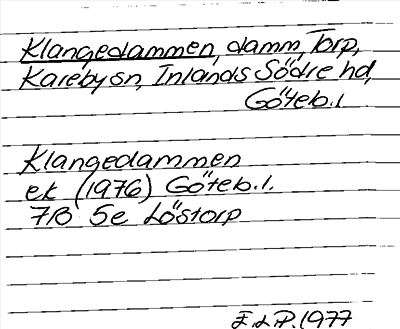 Klangedammen, damm, Torp,
Kareby sn, Inlands Södre hd,
Göteb. l
Klangedammen
ek (1976) Göteb. l.
7B 5e Löstorp
E.L.P. 1977